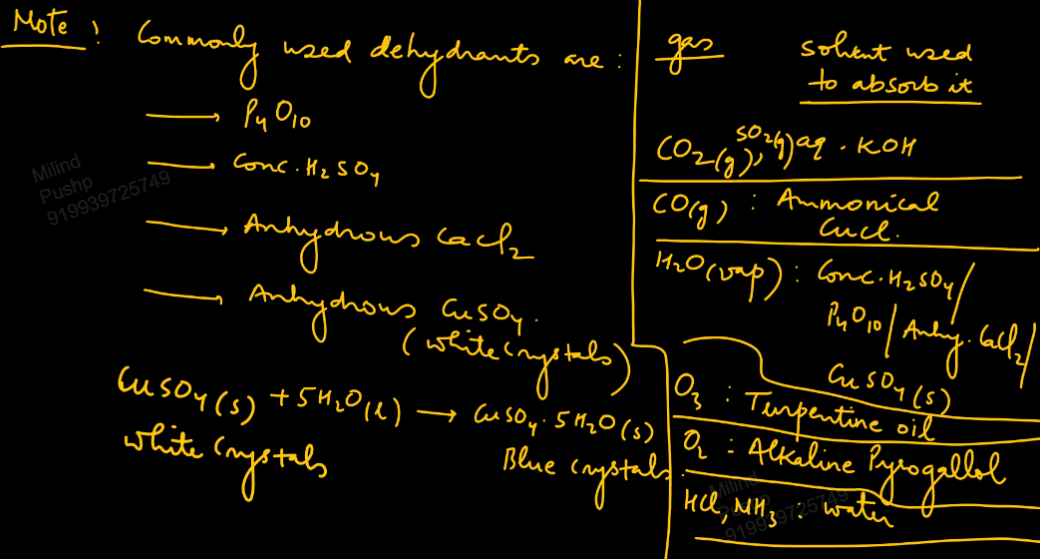 Note : Commonly used dehydrants are :
→ P4O10
→ Conc. H2SO4
→ Anhydrous CaCl2
→ Anhydrous CuSO4.
(white crystals)
CuSO4(s) + 5H2O(l) → CuSO4.5H2O(s)
white crystals
Blue crystals.
gas
solvent used
to absorb it
CO2(g), SO2(g) aq. KOH
CO(g) : Ammonical
CuCl.
H2O(vap) : Conc. H2SO4/
P4O10/Anhy. CaCl2/
CuSO4(s)
O3 : Turpentine oil
O2 : Alkaline Pyrogallol
HCl, NH3 : water
Milind
Pushp
919939725749
Milind
Pushp
919939725749